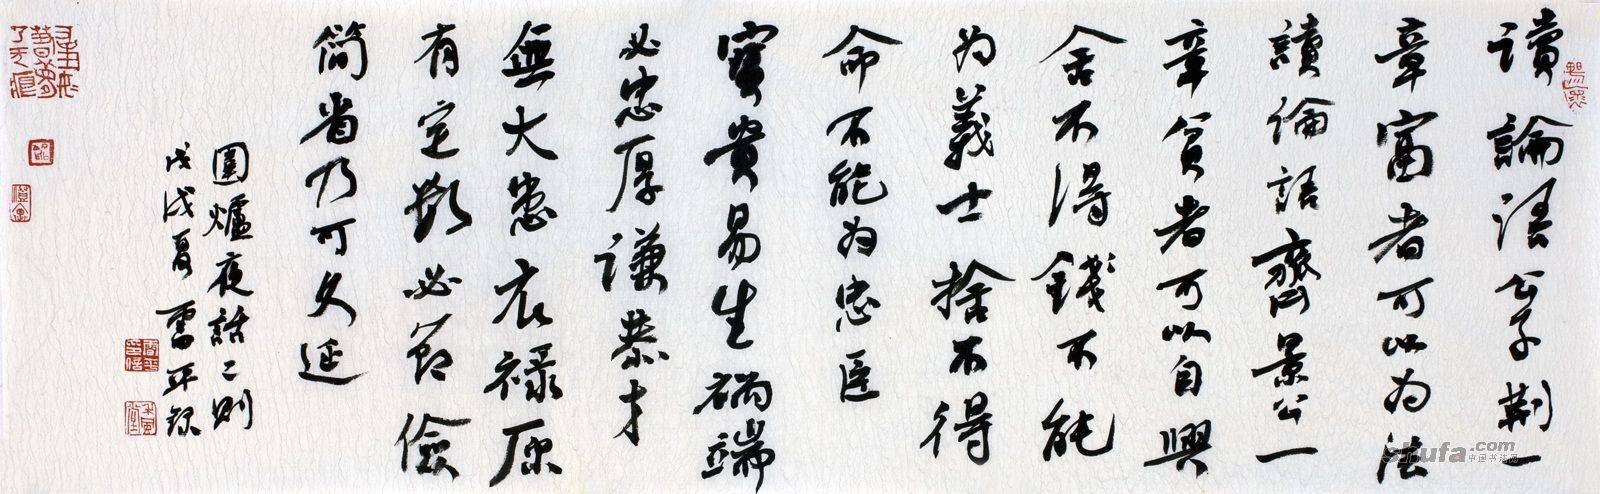 讀論語公子荆一
章富者可以为法
讀論語齊景公一
章貧者可以自興
舍不得錢不能
为義士捨不得
命不能为忠臣
富貴易生禍端
必忠厚謙恭才
無大患衣禄原
有定數必節儉
簡省乃可久延
圍爐夜話二則
戊戌夏雷平録
shufa.com
中国书法网